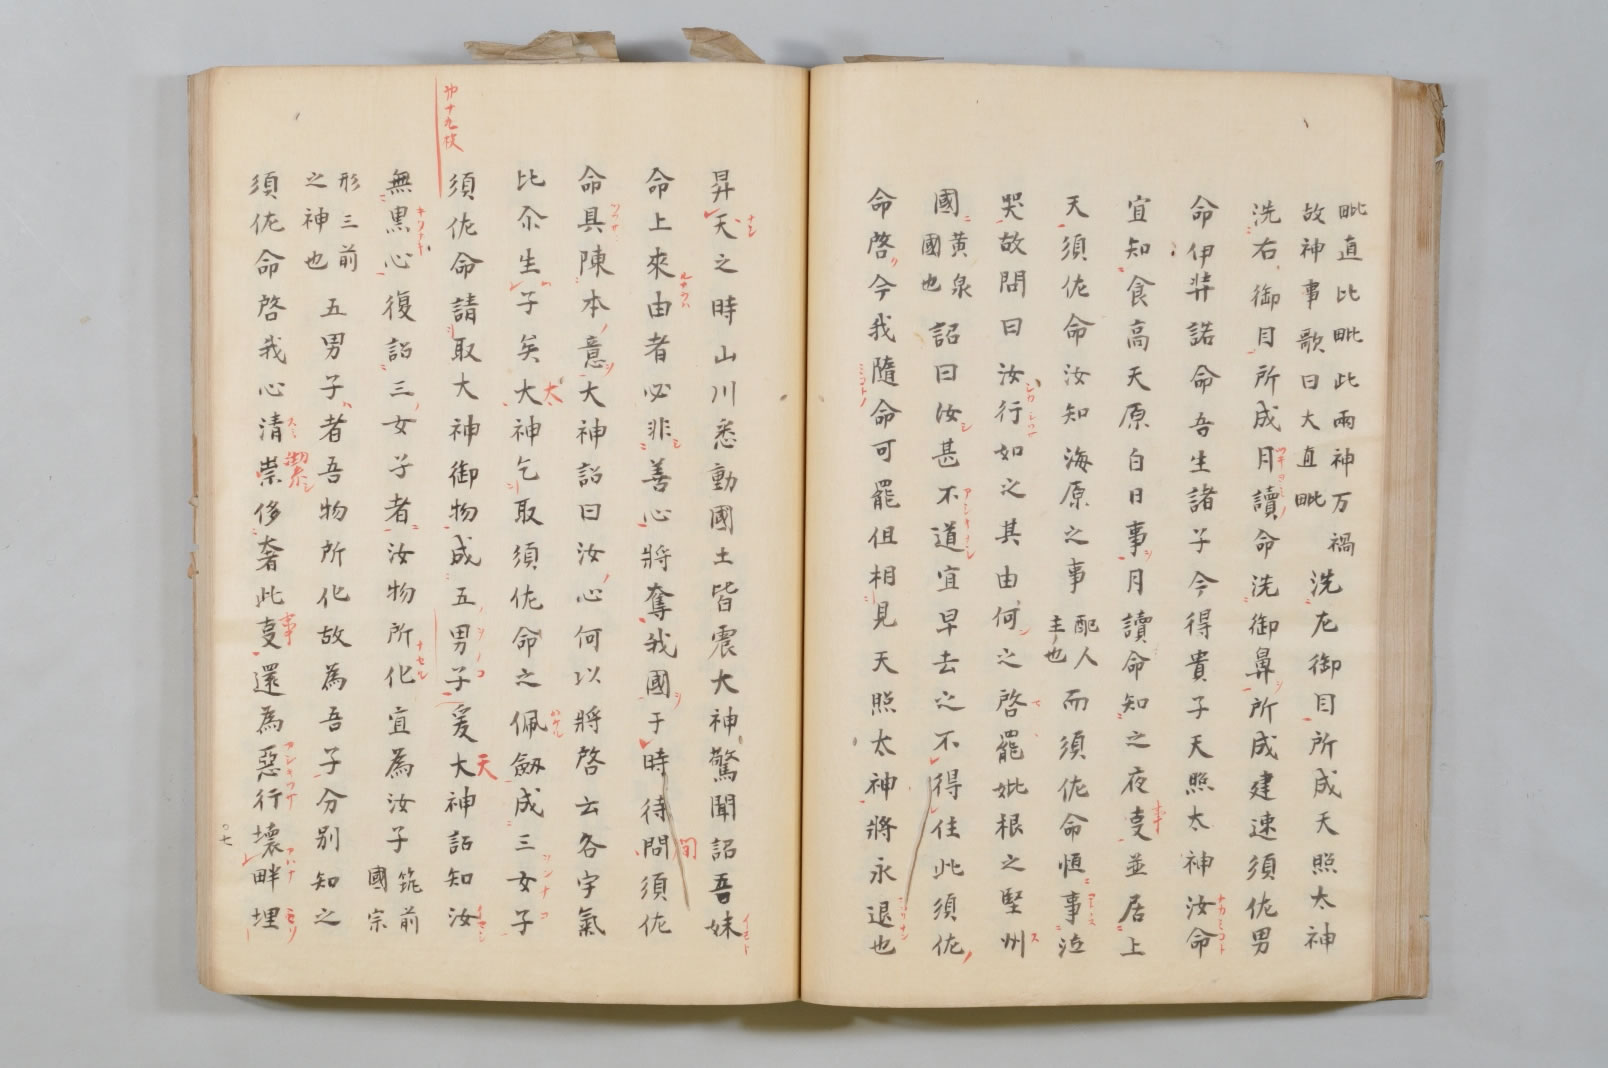 毗直比毗此兩神万禍
故神事歌曰大直毗
洗左御目所成天照太神
洗右御目所成月讀命洗御鼻所成建速須佐男
命伊弉諾命吾生諸子今得貴子天照太神汝命
宜知食高天原白日事月讀命知之夜㕝並居上
事
天須佐命汝知海原之事
配人
主也
而須佐命恒事泣
哭故問曰汝行如之其由何之啓罷妣根之堅州
國
黄泉
國也
詔曰汝甚不道宜早去之不得住此須佐
命啓今我隨命可罷但相見天照太神將永退也
昇天之時山川悉動國土皆震大神驚聞詔吾妹
命上來由者必非善心將奪我國于時待問須佐
命具陳本意大神詔曰汝心何以將啓云各宇氣
比尓生子矣大神乞取須佐命之佩劔成三女子
太
第十九枚
須佐命請取大神御物成五男子爰大神詔知汝
天
無黒心復詔三女子者汝物所化宜為汝子
筑前
國宗
形三前
之神也
五男子者吾物所化故為吾子分別知之
須佐命啓我心清崇侈奢此㕝還為惡行壞畔埋
潔
事